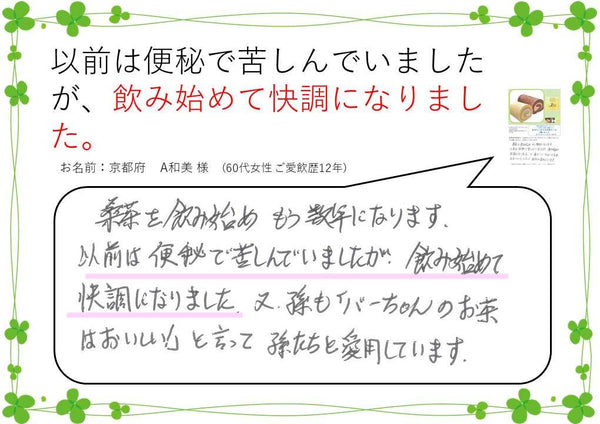 以前は便秘で苦しんでいました
が、飲み始めて快調になりまし
た。
お名前：京都府　A和美 様　（60代女性 ご愛飲歴12年）
桑茶を飲み始め もう数年になります。
以前は便秘で苦しんでいましたが、飲み始めて
快調になりました。又、孫も「バーちゃんのお茶
はおいしい」と言って 孫たちと愛用しています。